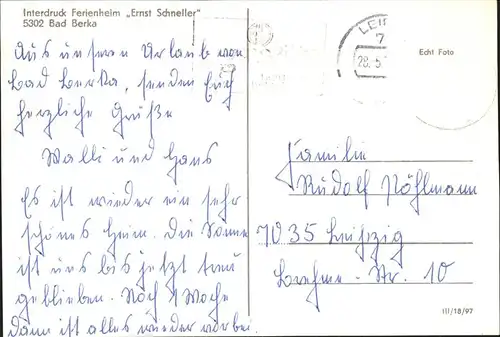 Interdruck Ferienheim „Ernst Schneller"
5302 Bad Berka
Aus unserem Urlaub von
Bad Berka, senden Euch
herzliche Grüße
Walli und Hans
Es ist wieder ein sehr
schönes Heim. Die Sonne
ist uns bis jetzt treu
geblieben. Noch 1 Woche
dann ist alles wieder vorbei.
LEI
7
28.5
Echt Foto
Familie
Rudolf Möhlmann
7035 Leipzig
Str. 10
III/18/97